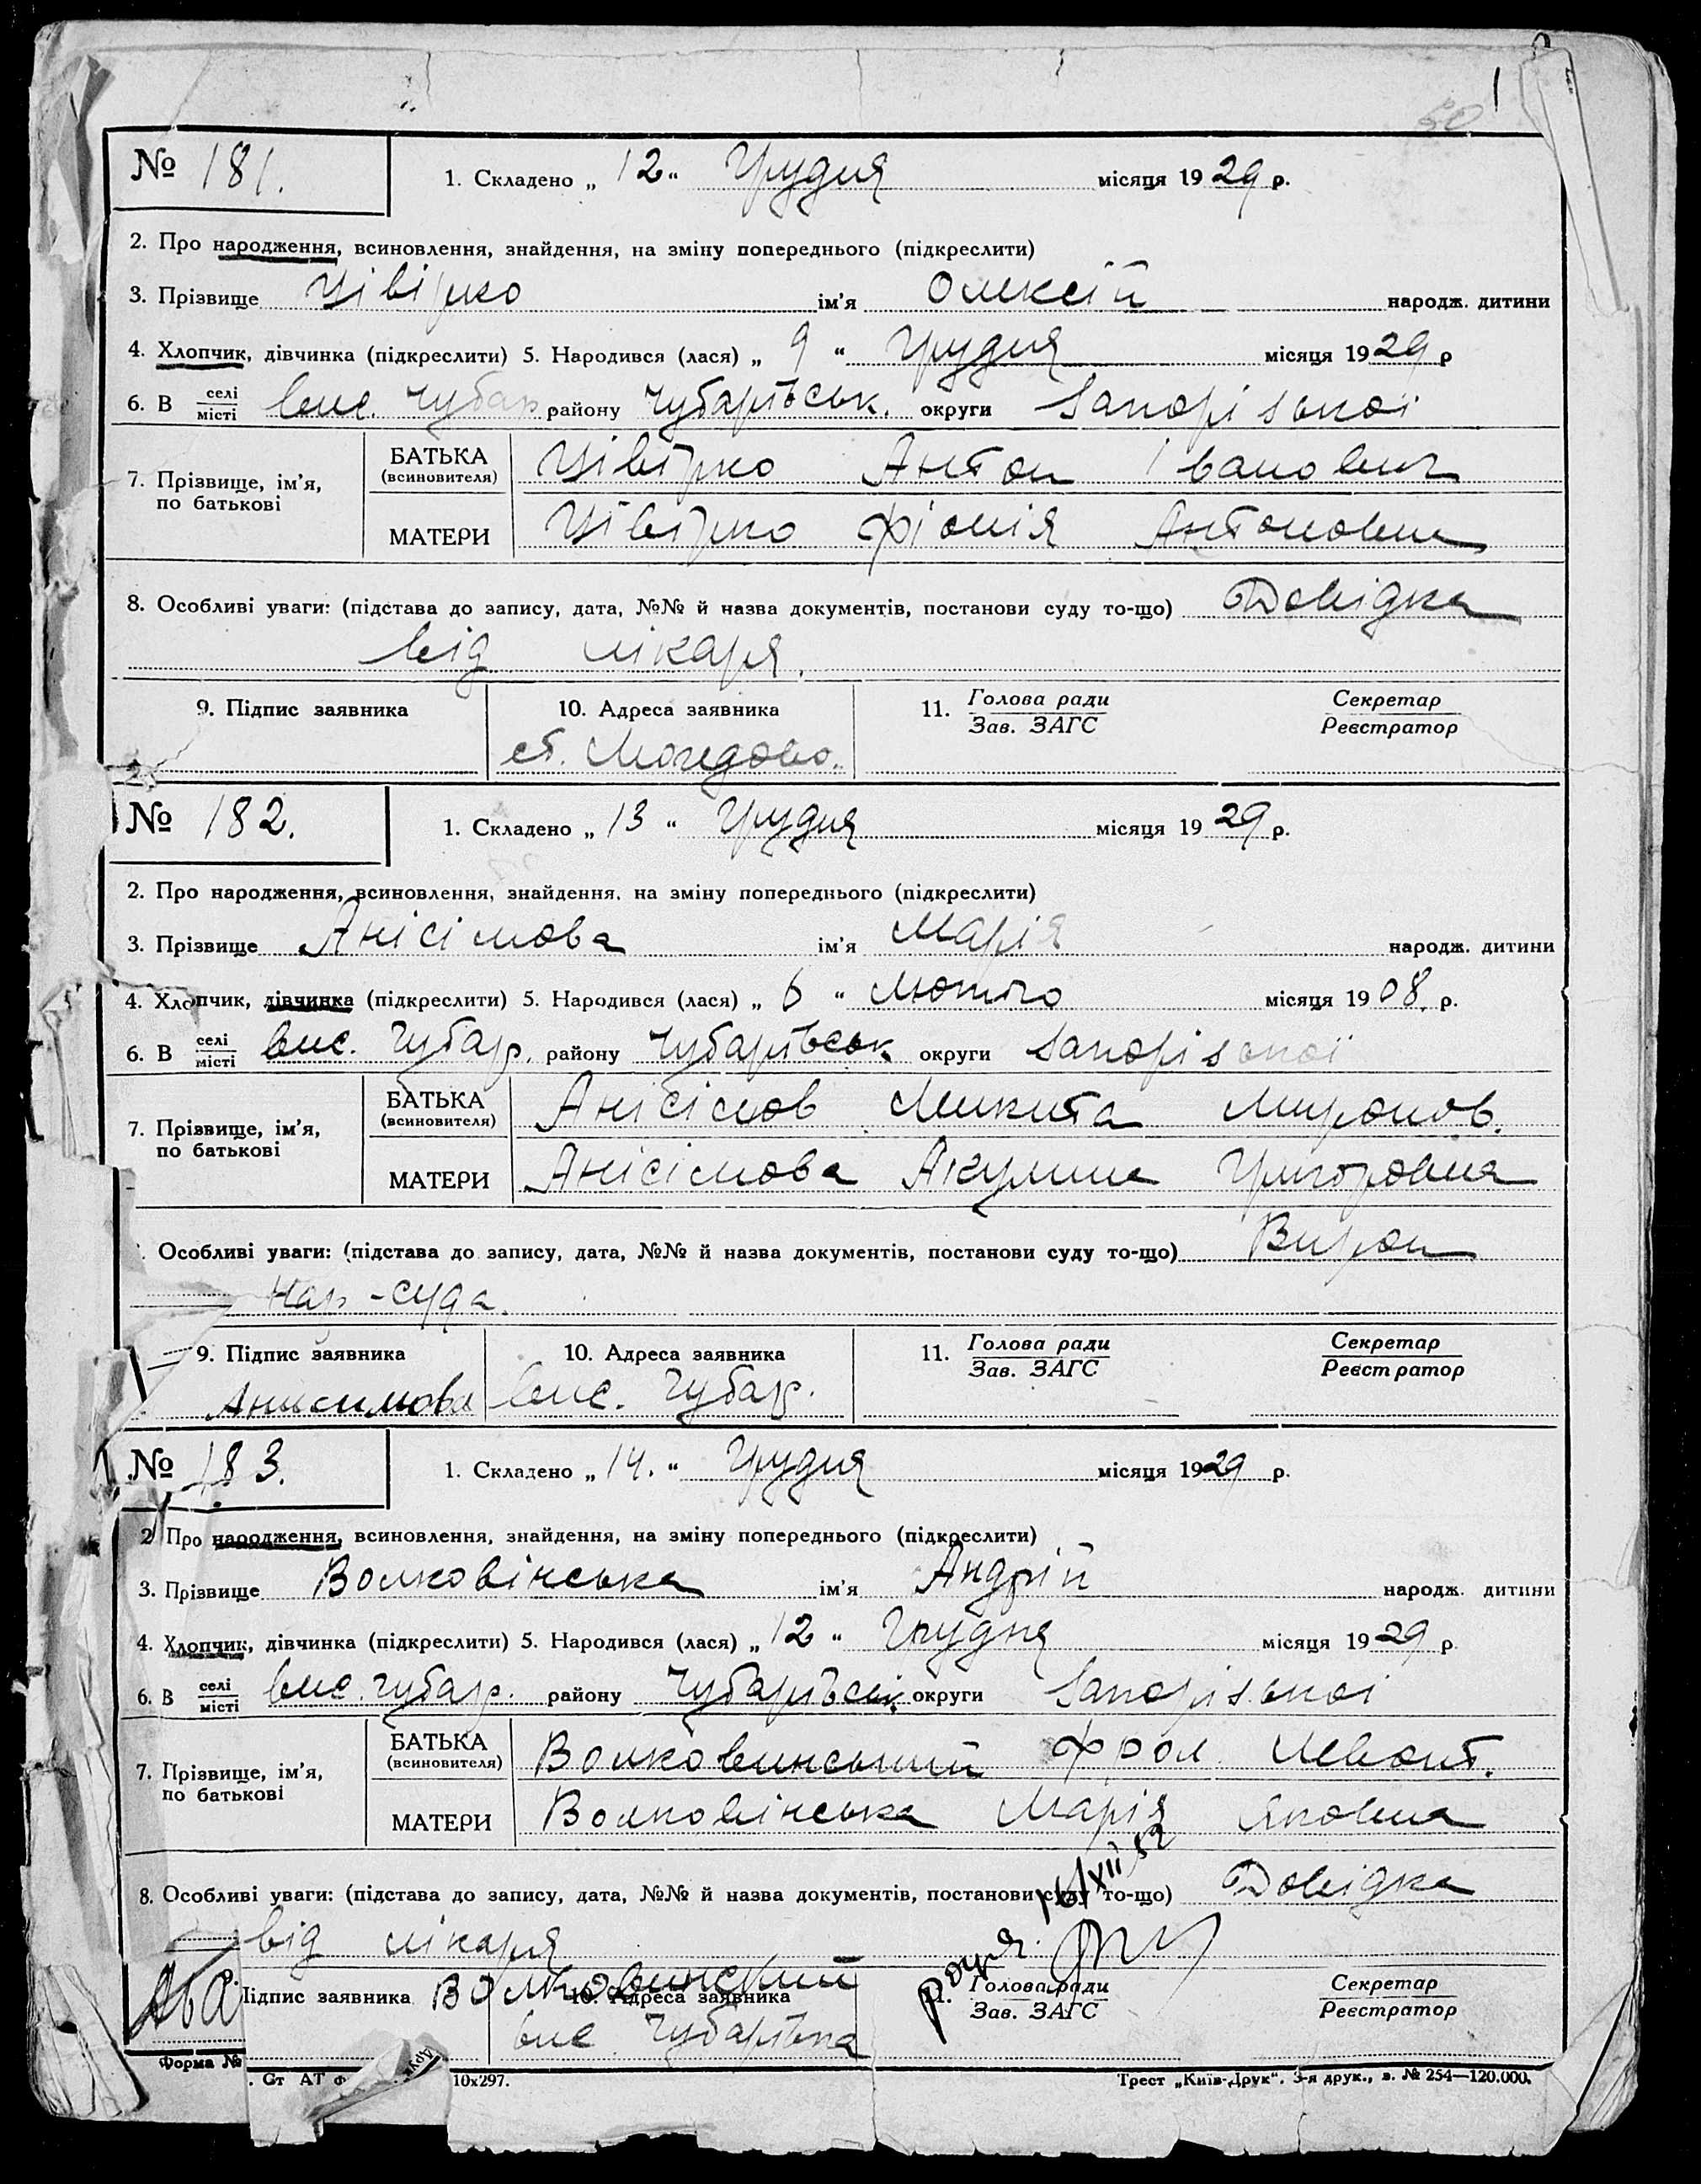 1
50
№ 181. 1. Складено „ 12 “ Грудня місяця 1929 р.
2. Про народження, всиновлення, знайдення, на зміну попереднього (підкреслити)
3. Прізвище Цівірко ім'я Олексій народж. дитини
4. Хлопчик, дівчинка (підкреслити) 5. Народився (лася) „ 9 “ Грудня місяця 1929 р
6. В селі/місті вис. Чубар району Чубарівськ. округи Запорізької
7. Прізвище, ім'я, по батькові БАТЬКА (всиновителя) Цівірко Антон Іванович
МАТЕРИ Цівірко Фіонія Антоновна
8. Особливі уваги: (підстава до запису, дата, №№ й назва документів, постанови суду то-що) Довідка
від лікаря.
9. Підпис заявника 10. Адреса заявника 11. Голова ради/Зав. ЗАГС Секретар/Реєстратор
ст. Магедово.
№ 182. 1. Складено „ 13 “ Грудня місяця 1929 р.
2. Про народження, всиновлення, знайдення, на зміну попереднього (підкреслити)
3. Прізвище Анісімова ім'я Марія народж. дитини
4. Хлопчик, дівчинка (підкреслити) 5. Народився (лася) „ 6 “ Лютого місяця 1908 р.
6. В селі/місті вис. Чубар. району Чубарівськ округи Запорізької
7. Прізвище, ім'я, по батькові БАТЬКА (всиновителя) Анісімов Микита Миронов.
МАТЕРИ Анісімова Акулина Григоровна
Особливі уваги: (підстава до запису, дата, №№ й назва документів, постанови суду то-що) Вирок
Нар-суда.
9. Підпис заявника 10. Адреса заявника 11. Голова ради/Зав. ЗАГС Секретар/Реєстратор
Анисимова вис. Чубар.
№ 183. 1. Складено „ 14. “ Грудня місяця 1929 р.
2 Про народження, всиновлення, знайдення, на зміну попереднього (підкреслити)
3. Прізвище Волковінська ім'я Андрій народж. дитини
4. Хлопчик, дівчинка (підкреслити) 5. Народився (лася) „ 12 “ Грудня місяця 1929 р
6. В селі/місті вис. Чубар. району Чубарівськ. округи Запорізької
7. Прізвище, ім'я, по батькові БАТЬКА (всиновителя) Волковинський Фрол Левонт.
МАТЕРИ Волковінська Марія Яковна
16/XII 52
8. Особливі уваги: (підстава до запису, дата, №№ й назва документів, постанови суду то-що) Довідка
від лікаря
Підпис заявника Волковинский 10. Адреса заявника 11. Голова ради/Зав. ЗАГС Секретар/Реєстратор
вис Чубарівка
Форма №
. Ст АТ ф 10х297. Трест „Київ-Друк“. 3-я друк., з. № 254—120.000.